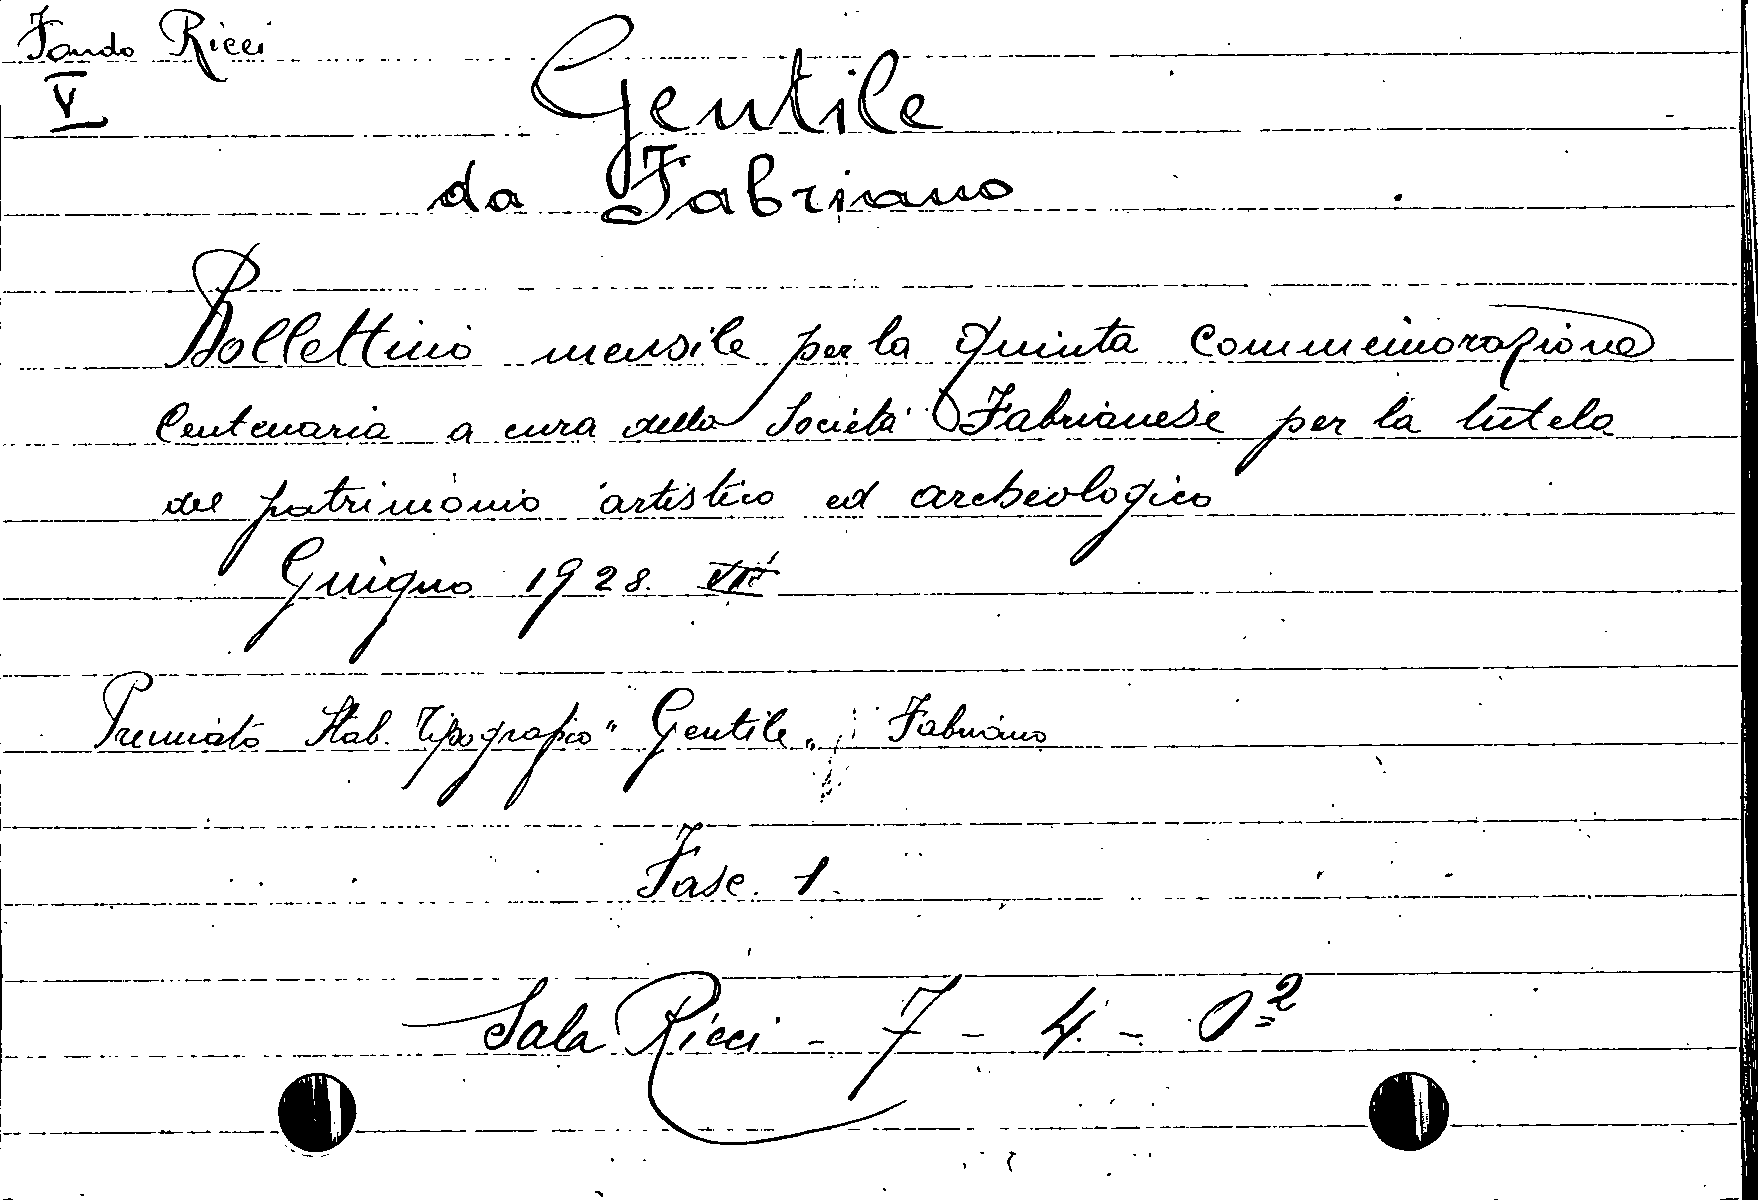 Fondo Ricci
V
Gentile
da Fabriano
Bollettino mensile per la quinta commemorazione
Centenaria a cura della Società Fabrianese per la tutela
del patrimonio artistico ed archeologico
Giugno 1928.
Premiato Stab. Tipografico "Gentile" Fabriano
Fasc. 1.
Sala Ricci - 7 - 4. -